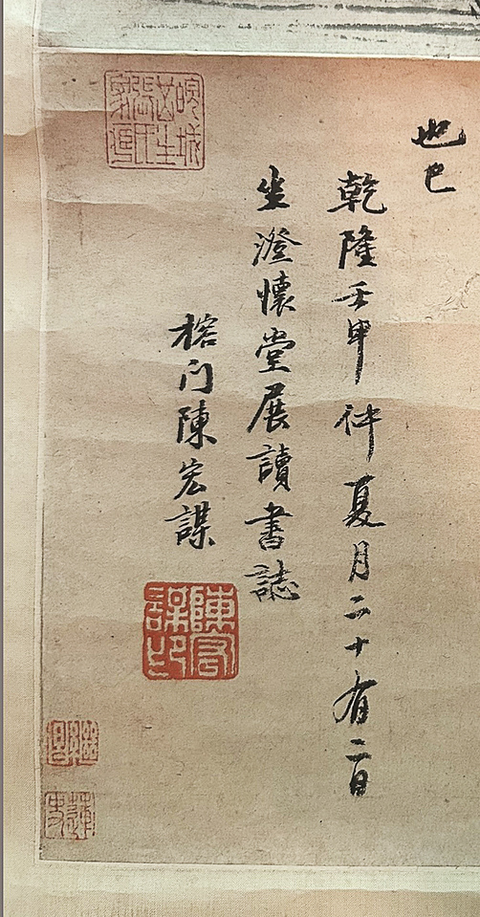 也已
乾隆壬申仲夏月二十有二日
坐澄懷堂展讀書誌
榕门陳宏謀
陳宏謀印